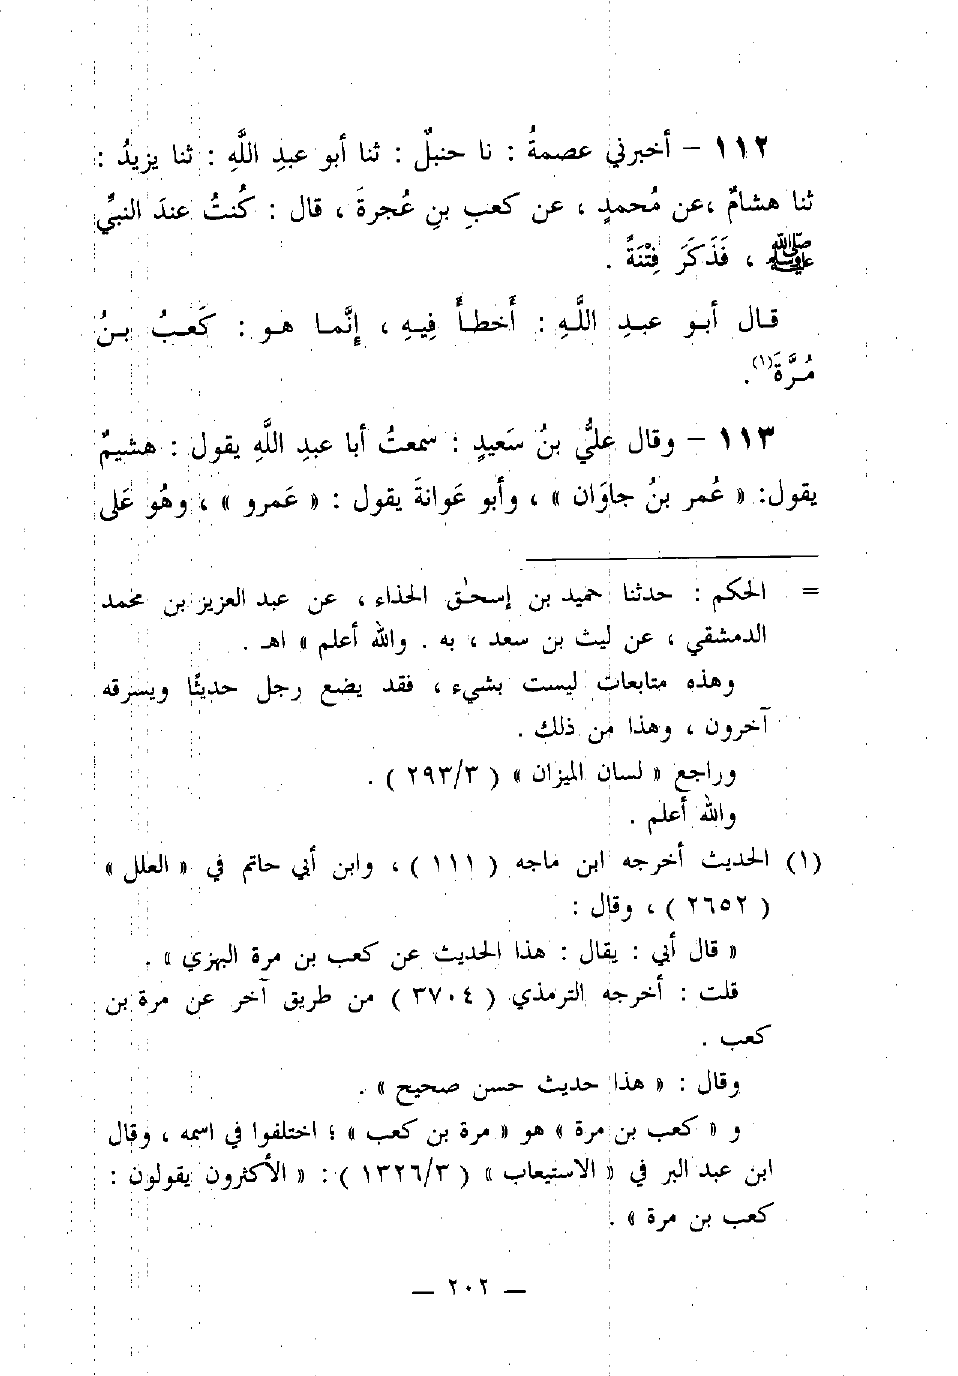 ١١٢ – أخبرني عصمةُ : نا حنبلٌ : ثنا أبو عبدِ اللَّهِ : ثنا يزيدُ :
ثنا هشامٌ ،عن مُحمدٍ ، عن كعبِ بنِ عُجرةَ ، قال : كُنتُ عندَ النبيِّ
ﷺ ، فَذَكَرَ فِتْنَةً .
قال أبو عبدِ اللَّهِ : أَخطأَ فِيهِ ، إِنَّما هو : كَعبُ بنُ
مُرَّةَ(١).
١١٣ – وقال عليُّ بنُ سَعيدٍ : سمعتُ أبا عبدِ اللَّهِ يقول : هشيمٌ
يقول: « عُمر بنُ جاوَان » ، وأبو عَوانةَ يقول : « عَمرو » ، وهُو عَلى
= الحكم : حدثنا حميد بن إسحٰق الحذاء ، عن عبد العزيز بن محمد
الدمشقي ، عن ليث بن سعد ، به . والله أعلم » اهـ .
وهذه متابعات ليست بشيء ، فقد يضع رجل حديثًا ويسرقه
آخرون ، وهذا من ذلك .
وراجع « لسان الميزان » ( ٢٩٣/٣ ) .
والله أعلم .
(١) الحديث أخرجه ابن ماجه ( ١١١ ) ، وابن أبي حاتم في « العلل »
( ٢٦٥٢ ) ، وقال :
« قال أبي : يقال : هذا الحديث عن كعب بن مرة البهزي » .
قلت : أخرجه الترمذي ( ٣٧٠٤ ) من طريق آخر عن مرة بن
كعب .
وقال : « هذا حديث حسن صحيح » .
و « كعب بن مرة » هو « مرة بن كعب » ؛ اختلفوا في اسمه ، وقال
ابن عبد البر في « الاستيعاب » ( ١٣٢٦/٣ ) : « الأكثرون يقولون :
كعب بن مرة » .
— ٢٠٢ —